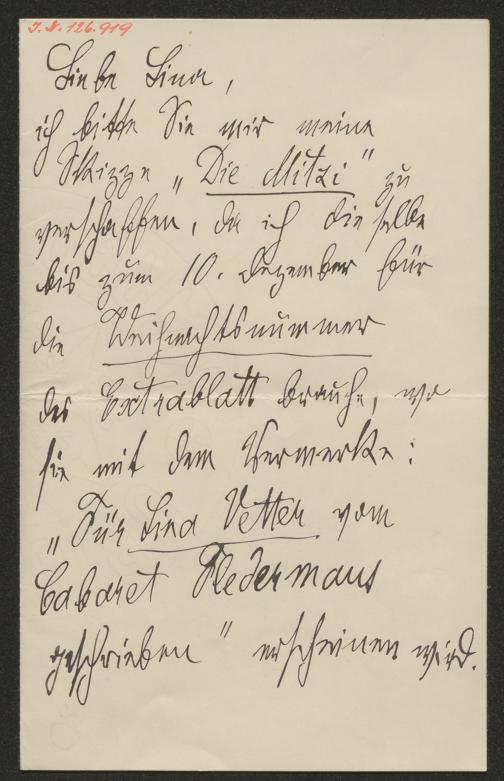 J.N. 126.919
Liebe Lina,
ich bitte Sie mir meine
Skizze „Die Mitzi" zu
verschaffen, da ich dieselbe
bis zum 10. Dezember für
die Weihnachtsnummer
des Extrablatt brauche, wo
sie mit dem Vermerke:
„Für Lina Vetter vom
Cabaret Fledermaus
geschrieben" erscheinen wird.